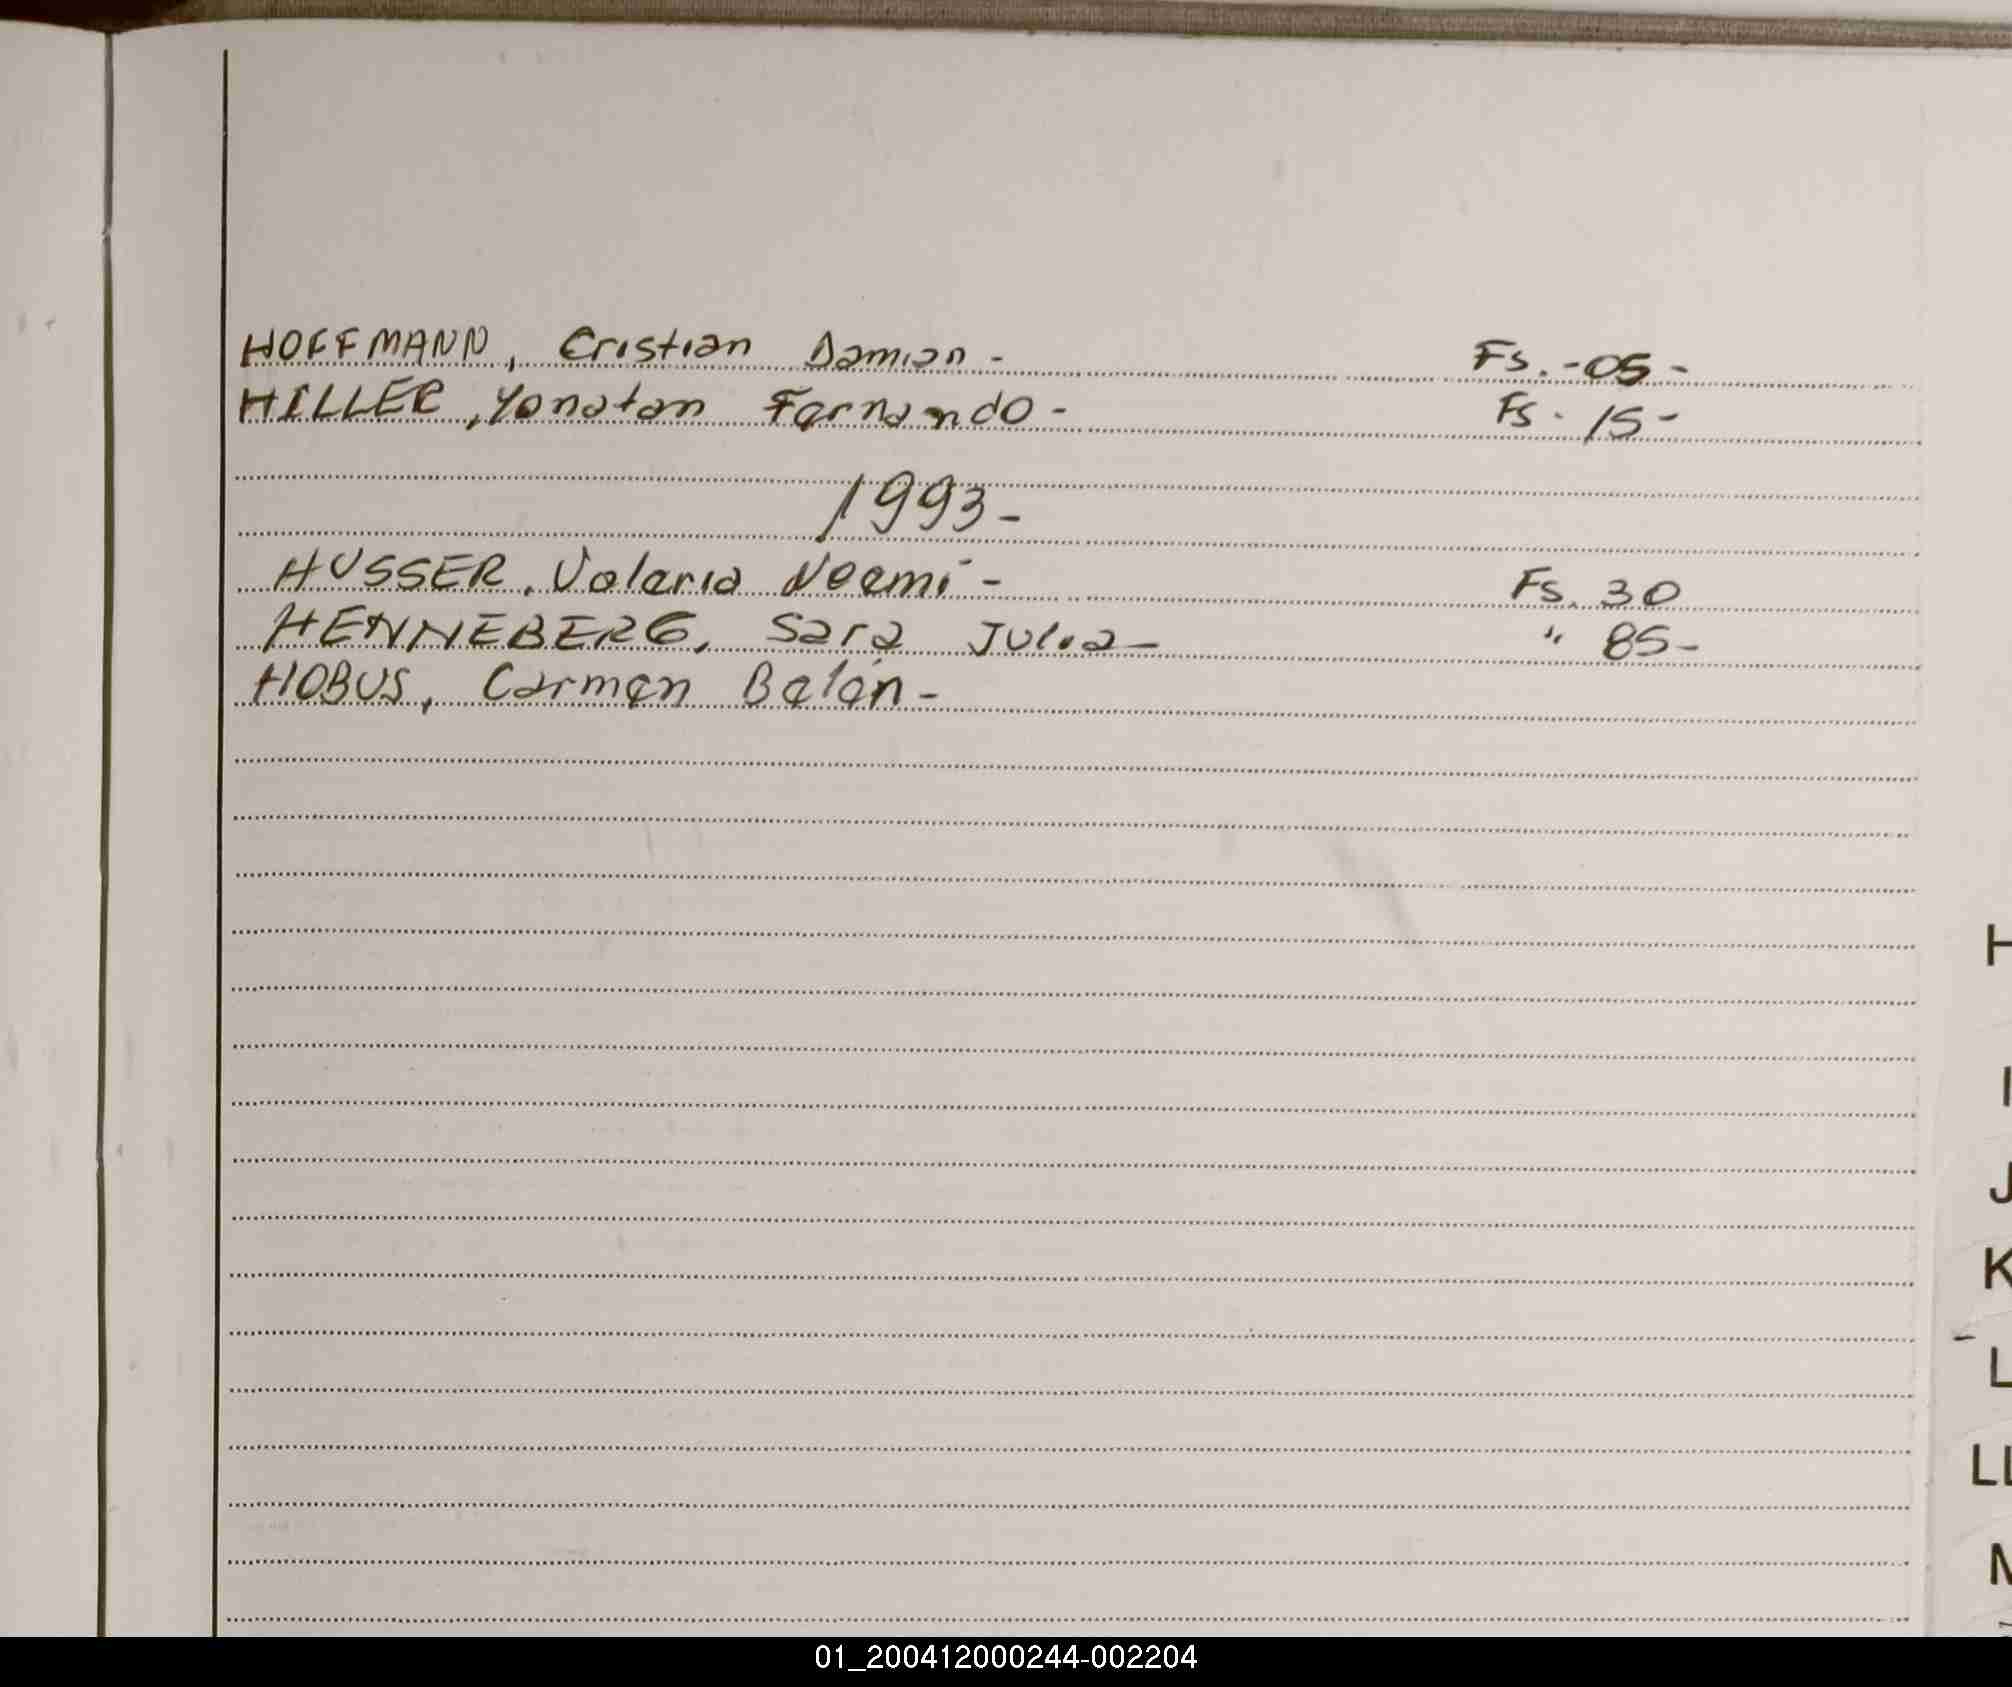 HOFFMANN, Cristian Damian - Fs. - 05 -
HILLER, Yonatan Fernando - Fs. 15 -
1993 -
HUSSER, Valeria Noemí - Fs. 30
HENNEBERG, Sara Julia - " 85 -
HOBUS, Carmen Belén -
H
I
J
K
L
LL
M
01_200412000244-002204